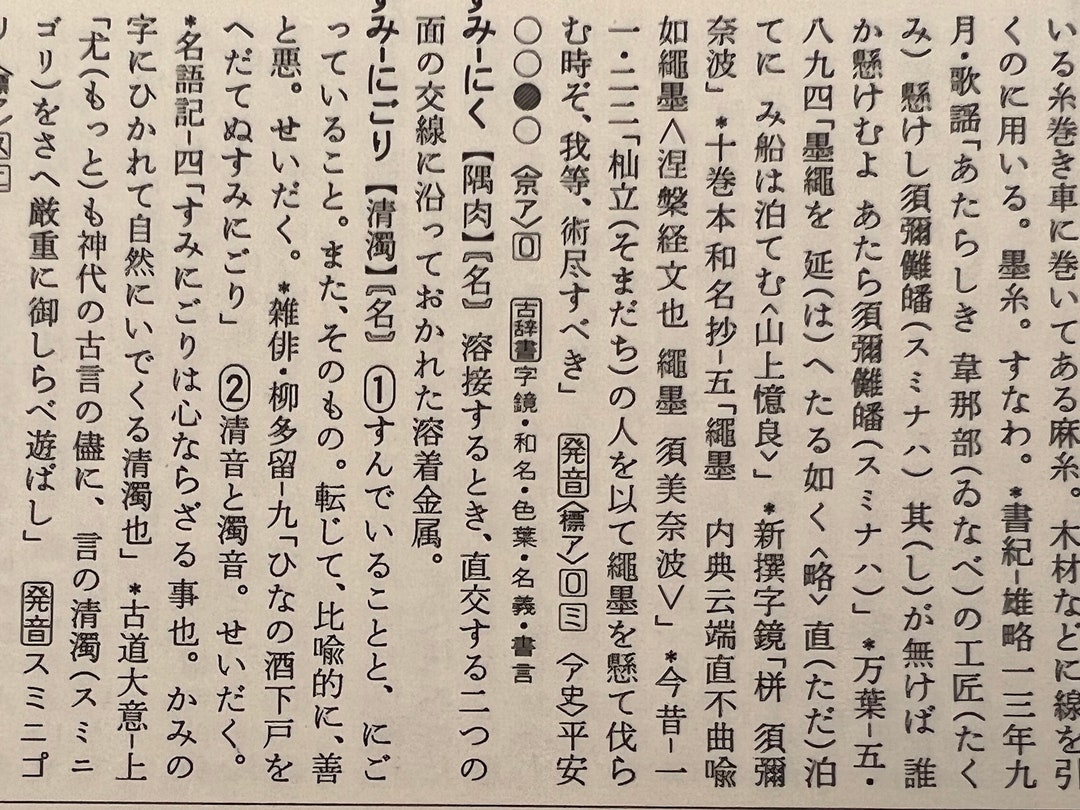 いる糸巻き車に巻いてある麻糸。木材などに線を引
くのに用いる。墨糸。すなわ。＊書紀‐雄略一三年九
月・歌謡「あたらしき 韋那部（ゐなべ）の工匠（たく
み） 懸けし須彌儺皤（スミナハ） 其（し）が無けば 誰
か懸けむよ あたら須彌儺皤（スミナハ）」＊万葉‐五・
八九四「墨繩を 延（は）へたる如く〈略〉直（ただ）泊
てに み船は泊てむ〈山上憶良〉」＊新撰字鏡「栟 須彌
奈波」＊十巻本和名抄‐五「繩墨 内典云端直不曲喩
如繩墨〈涅槃経文也 繩墨 須美奈波〉」＊今昔‐一
一・二二「杣立（そまだち）の人を以て繩墨を懸て伐ら
む時ぞ、我等、術尽すべき」 発音〈標ア〉0ミ〈ア史〉平安
○○●○〈京ア〉0 古辞書字鏡・和名・色葉・名義・書言
すみ‐にく【隅肉】〘名〙溶接するとき、直交する二つの
面の交線に沿っておかれた溶着金属。
すみ‐にごり【清濁】〘名〙①すんでいることと、にご
っていること。また、そのもの。転じて、比喩的に、善
と悪。せいだく。＊雑俳・柳多留‐九「ひなの酒下戸を
へだてぬすみにごり」 ②清音と濁音。せいだく。
＊名語記‐四「すみにごりは心ならざる事也。かみの
字にひかれて自然にいでくる清濁也」＊古道大意‐上
「尤（もっと）も神代の古言の儘に、言の清濁（スミニ
ゴリ）をさへ厳重に御しらべ遊ばし」 発音スミニゴ
リ〈標ア〉